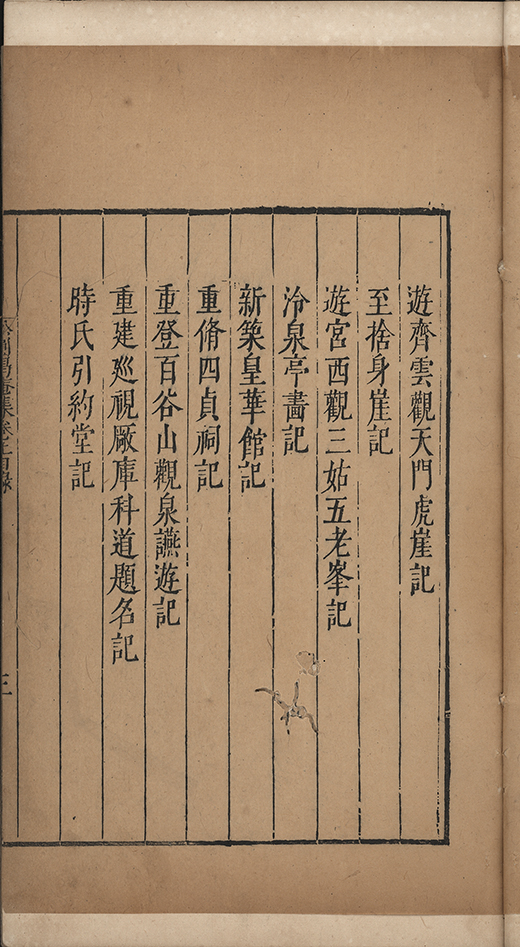 遊齊雲觀天門虎崖記
至捨身崖記
遊宮西觀三姑五老峯記
冷泉亭畵記
新築皇華館記
重脩四貞祠記
重登百谷山觀泉讌遊記
重建廵視厰庫科道題名記
時氏引約堂記
三